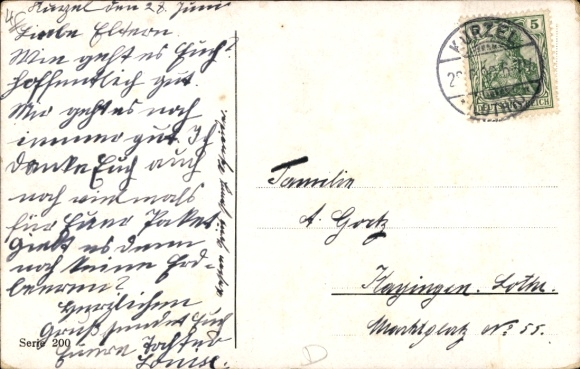 Kurzel den 28. Juni
Liebe Eltern.
Wie geht es Euch?
hoffentlich gut.
Mir geht es noch
immer gut. Ich
danke Euch auch
noch viemals
für Euer Paket
Giebt es denn
noch keine Erd-
beeren?
Herzlichen
Gruß sendet Euch
Euere Tochter
Louise.
Serie 200
5
KURZEL
(LOTHR)
Familie
A. Goetz
Hayingen. Lothr.
Marktplatz No 55.